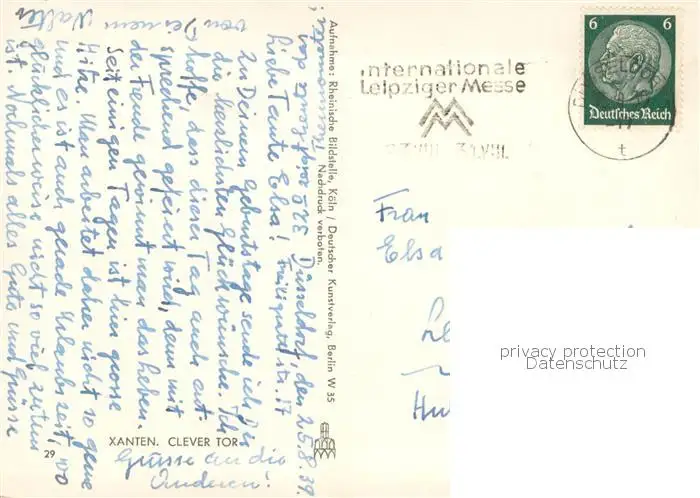 Düsseldorf, den 25.8.39.
Liebe Tante Elsa!
Zu Deinem Geburtstage sende ich Dir
die herzlichsten Glückwünsche. Ich
hoffe, dass dieser Tag auch ent-
sprechend gefeiert wird, denn mit
der Freude gewinnt man das Leben.
Seit einigen Tagen ist hier grosse
Hitze. Man arbeitet daher nicht so gerne
und es ist auch gerade Urlaubszeit, wo
glücklicherweise nicht so viel zu tun
ist. Nochmals alles Gute und Grüsse
von Deinem Walter
Grüsse an die
Anderen!
XANTEN. CLEVER TOR
29
Aufnahme: Rheinische Bildstelle, Köln / Deutscher Kunstverlag, Berlin W 35
Nachdruck verboten.
Internationale
Leipziger Messe
6 6
Deutsches Reich
t
Frau
Elsa
privacy protection
Datenschutz